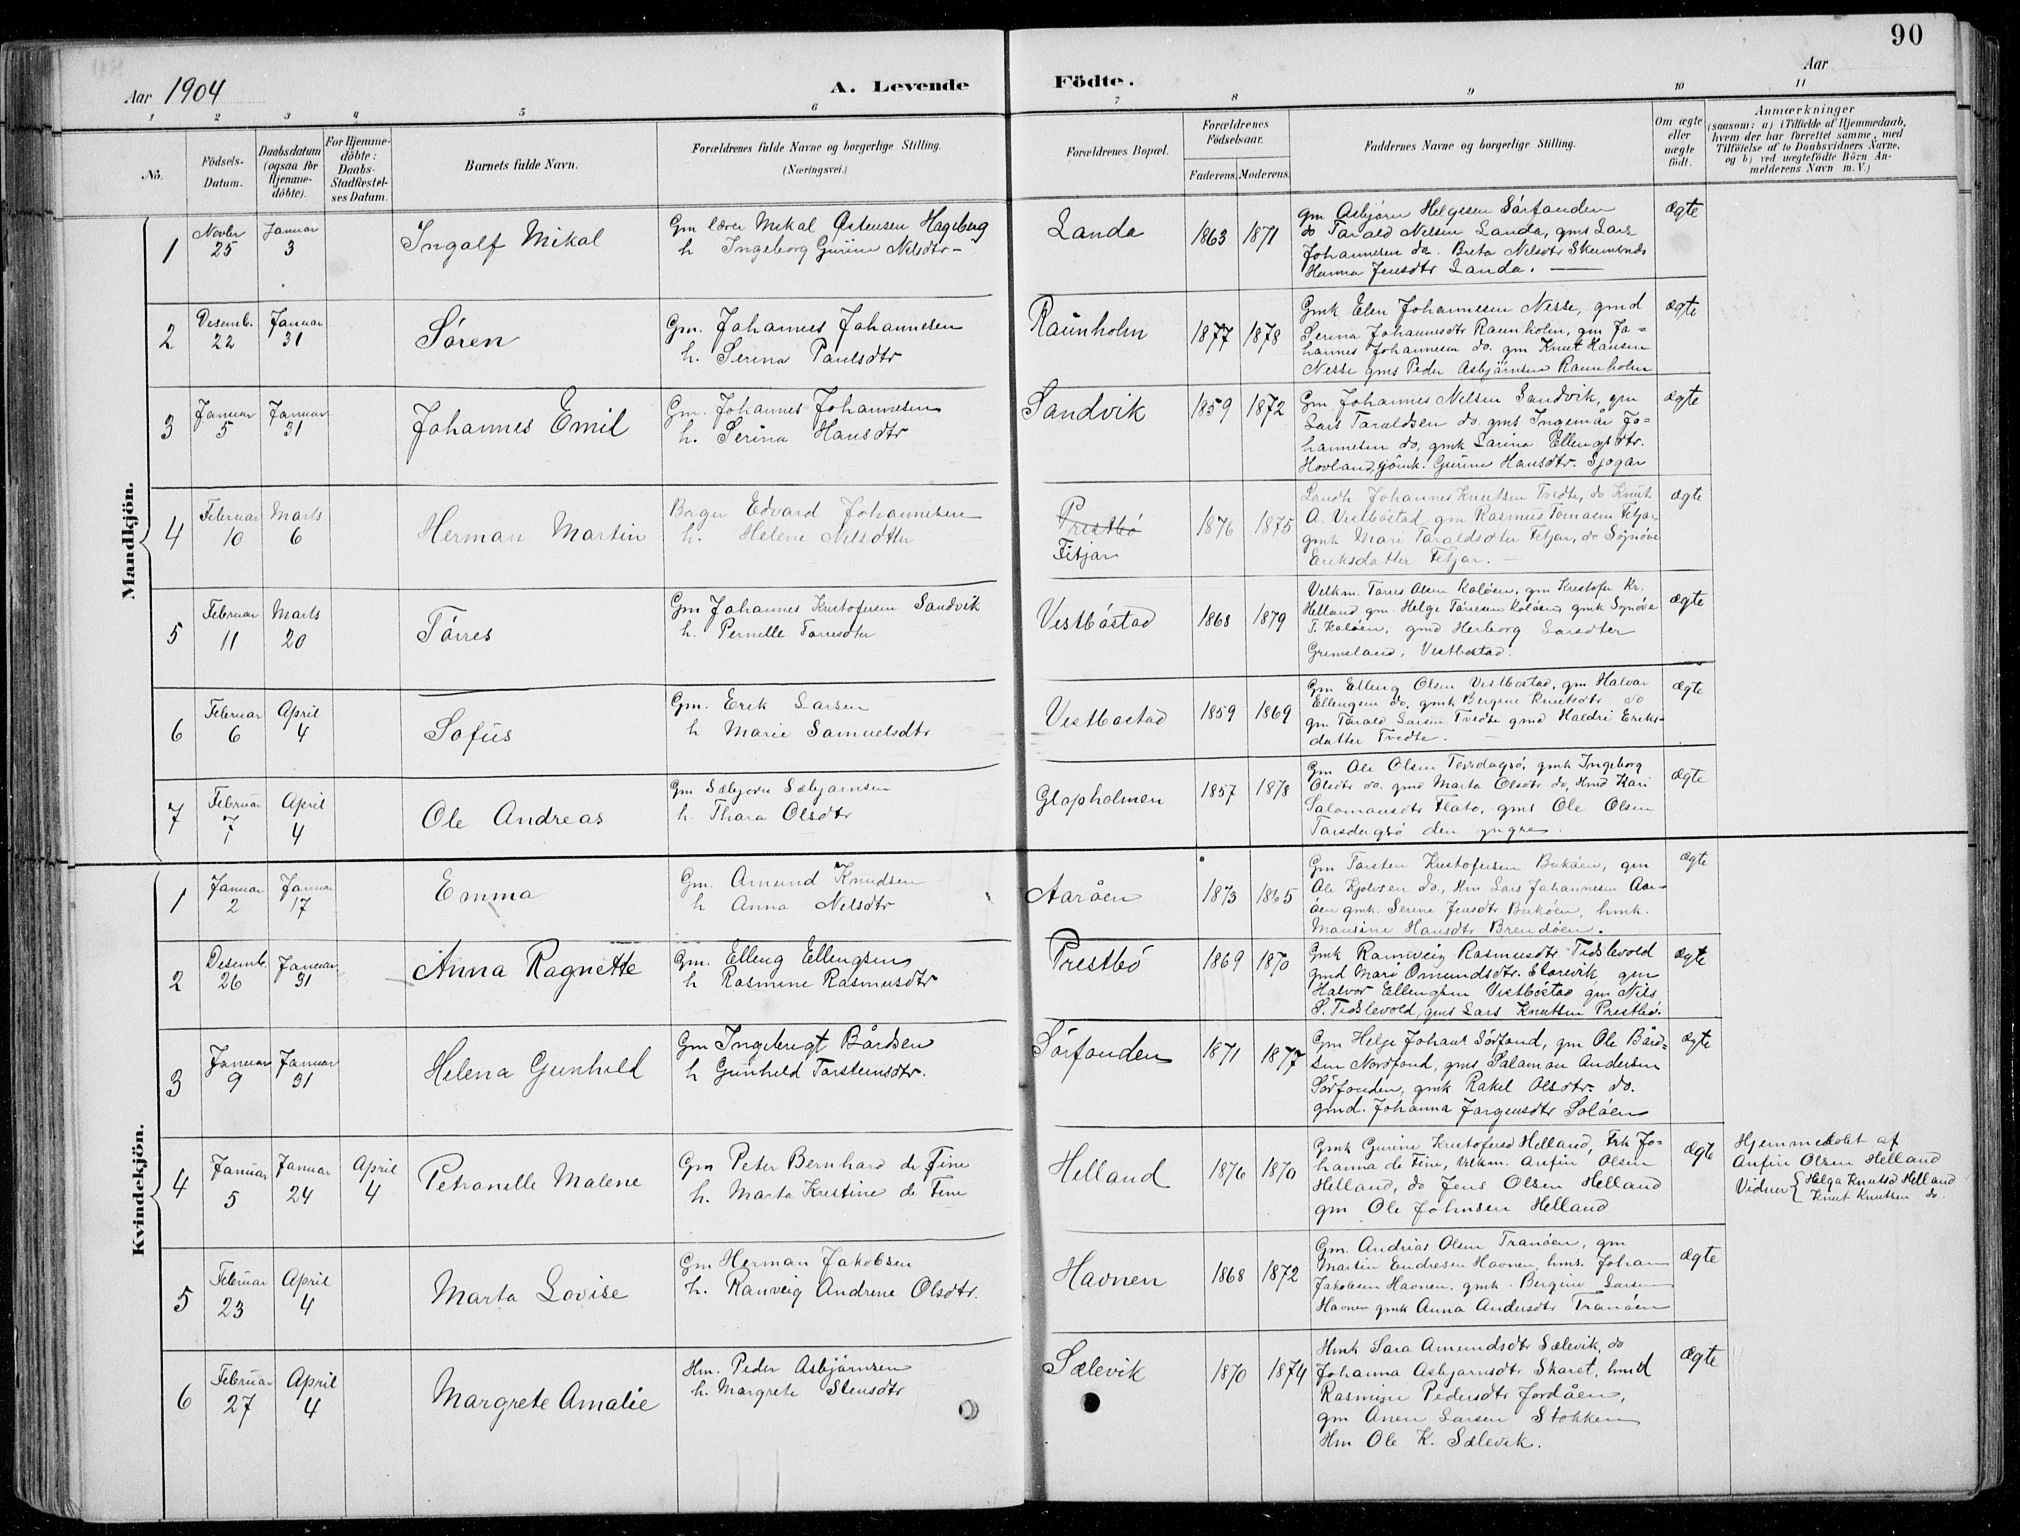 90
Aar 1904
A. Levende Födte.
Aar
1 2 3 4 5 6 7 8 9 10 11
No.
Födsels-Datum.
Daabsdatum (ogsaa for Hjemme-döbte).
For Hjemme-döbte: Daabs-Stadfæstel-ses Datum.
Barnets fulde Navn.
Forældrenes fulde Navne og borgerlige Stilling.
(Næringsvei.)
Forældrenes Bopæl.
Forældrenes Födselsaar.
Faderens. Moderens.
Faddernes Navne og borgerlige Stilling.
Om ægte eller uægte födt.
Anmærkninger
(saasom: a) i Tilfælde af Hjemmedaab,
hvem der har forrettet samme, med
Tilföielse af to Daabsvidners Navne.
og b) ved uægtefödte Börn An-
melderens Navn m. V.)
Mandkjön.
1 Novbr 25 Januar 3 Ingolf Mikal
Gm lærer Mikal Østensen Hageberg
h Ingeborg Gurine Nilsdtr
Landa 1863 1871
gm Asbjørn Helgesen Sørfonden
do Tarald Nelsen Landa, gms Lars
Johannesen do. Breta Nilsdtr
Hanna Jensdtr Landa.
Ægte
2 Desemb. 22 Januar 31 Søren
Gm. Johannes Johannesen
h. Serina Paulsdtr
Raunholm 1877 1878
Gmk Elen Johannesen Nesse, gmd
Serina Johannesdtr Raunholm, gm Jo=
hannes Johannesen do. gm Knut Hansen
Nesse gms Peder Asbjørnsen Raunholm
Ægte
3 Januar 5 Januar 31 Johannes Emil
Gm. Johannes Johannesen
h. Serina Hansdtr
Sandvik 1859 1872
Gm. Johannes Nelsen Sandvik, gm
Lars Taraldsen do. gms Ingemar Jo=
hannesen do, gmk Larina Ellengsdtr.
Hovland, Gurine Hansdtr.
Ægte
4 Februar 10 Marts 6 Herman Martin
Bager Edvard Johannesen
h. Helene Nilsdtter
Prestbø
Fitjar
1876 1875
Landh. Johannes Knutsen Tvedte, do Knut
A. Vestbøstad gm Rasmus Fitjar
gmk Mari Taraldsdtr Fitjar, do Sønnøve
Eriksdatter Fitjar.
Ægte
5 Februar 11 Marts 20 Tørres
Gm Johannes Kristofersen Sandvik
h. Pernille Tørresdtr
Vestbøstad 1868 1879
Velkm. Tørres Olsen Koløen, gm Kristofer Kr.
Helland gm. Helge Tørresen Koløen, gmk Synøve
T. Koløen, gmd Herborg Larsdtr
Grimsland, Vestbøstad.
Ægte
6 Februar 6 April 4 Sofus
Gm. Erik Larsen
h Marie Samuelsdtr
Vestbøstad 1859 1869
Gm Elleng Olsen Vestbøstad, gm Halvor
Ellengsen do, gmk Bergine Knutsdtr do
gm Tarald Larsen Tvedte gmd Haldri Eriks-
datter Tvedte.
Ægte
7 Februar 7 April 4 Ole Andreas
Gm Sæbjørn Sæbjørnsen
h. Thara Olsdtr
Glopholmen 1857 1878
Gm Ole Olsen gmk Ingeborg
Olsdtr do. gmd Marta Olsdtr do, Kari
Salamonsdtr Flato, gms Ole Olsen
den yngre.
Ægte
Kvindekjön.
1 Januar 2 Januar 17 Emma
Gm. Amund Knudsen
h Anna Nelsdtr
Aarøen 1873 1865
Gm Torsten Kristofersen Bukøen, gm
Ole do, Hm Lars Johannesen Aar-
øen gmk. Serine Jensdtr Bukøen, hmk.
Mansine Hansdtr Brendøen.
Ægte
2 Desemb. 26 Januar 31 Anna Ragnette
Gm. Elleng Ellengsen
h Rasmine Rasmusdtr
Prestbø 1869 1870
Gmk Rannveig Rasmusdtr Tidslevold
gmd Mari Omundsdtr. Storevik gm
Halvor Ellengsen Vestbøstad gm Nils
S. Tidslevold, gms Lars Knutsen Prestbø.
Ægte
3 Januar 9 Januar 31 Helena Gunhild
Gm Ingebrigt Bårdsen
h Gunhild Torsteinsdtr.
Sørfonden 1871 1877
Gm Helge Johans Sørfond, gm Ole Bård=
sen Nordfond, gms Salamon Andersen
Sørfonden, gmk Rakel Olsdtr. do.
gmd. Johanna Jørgensdtr Soløen
Ægte
4 Januar 5 Januar 24 April 4 Petronelle Malene
Gm Peter Bernhard de Fine
h. Marta Kristine de Fine
Helland 1876 1870
Gmk Gurine Kristofersd Helland, Frk Jo-
hanna de Fine, Velkm. Anfin Olsen
Helland, do Jens Olsen Helland
gm Ole Johnsen Helland
Ægte
Hjemmedøbt af
Anfin Olsen Helland
Vidner { Helga Knutsd Helland
Knut Knutsen do.
5 Februar 23 April 4 Marta Lovise
Gm Herman Jakobsen
h. Ranveig Andrine Olsdtr.
Havnen 1868 1872
Gm. Andrias Olsen Tranøen, gm
Martin Endresen Havnen, hms. Johan
Jakobsen Havnen. gmk. Bergine Larsen
Havnen gmk Anna Andersdtr Tranøen
Ægte
6 Februar 27 April 4 Margrete Amalie
Hm. Peder Asbjørnsen
h. Margrete Stensdtr
Sælevik 1870 1874
Hmk Sara Amundsdtr Sælevik, do
Johanna Asbjørnsdtr Skaret, hmd
Rasmine Pedersdtr Jordåen,
gm Anen Larsen Stokken
Hm Ole K. Sælevik.
Ægte